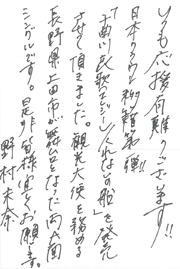 いつも応援有難うございます!!
日本クラウン移籍第一弾!!
「千曲川 くれないの船」を発売
させて頂きました。観光大使を務める
長野県上田市が舞台となる両A面
シングルです。是非皆様宜しくお願い
野村未奈